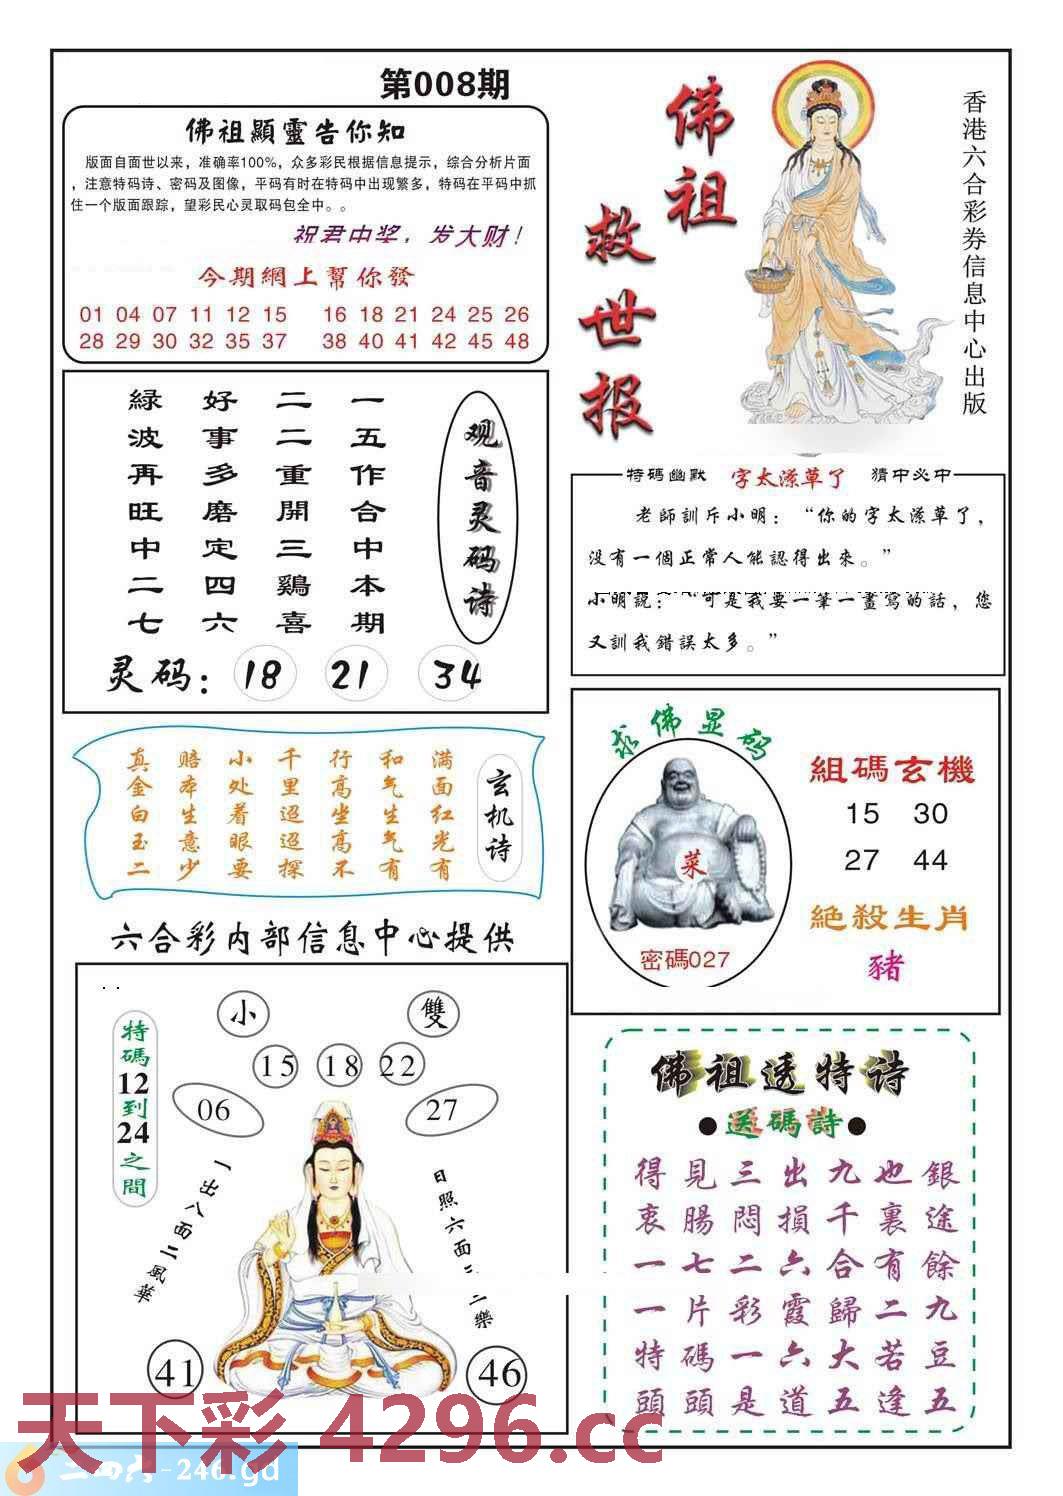 第008期
佛祖顯靈告你知
版面自面世以来，准确率100%，众多彩民根据信息提示，综合分析片面
，注意特码诗、密码及图像，平码有时在特码中出现繁多，特码在平码中抓
住一个版面跟踪，望彩民心灵取码包全中。。
祝君中奖，发大财！
今期網上幫你發
01 04 07 11 12 15 16 18 21 24 25 26
28 29 30 32 35 37 38 40 41 42 45 48
佛祖
救世报
香港六合彩券信息中心出版
观音灵码诗
一五作合中本期
二二重開三鷄喜
好事多磨定四六
緑波再旺中二七
灵码：18 21 34
特碼幽默 字太潦草了 猜中必中
老師訓斥小明：“你的字太潦草了，
没有一個正常人能認得出來。”
小明說：“可是我要一筆一畫寫的話，您
又訓我錯誤太多。”
玄机诗
满面红光有
和气生气有
行高坐高不
千里迢迢探
小处着眼要
赔本生意少
真金白玉二
求佛显码
菜
密碼027
組碼玄機
15 30
27 44
絕殺生肖
豬
六合彩内部信息中心提供
特碼12到24之間
小 雙
15 18 22
06 27
一出八面二風華
日照六面三二樂
41 46
佛祖透特诗
●送碼詩●
得見三出九也銀
衷腸悶損千裏途
一七二六合有餘
一片彩霞歸二九
特碼一六大若豆
頭頭是道五逢五
天下彩 4296.cc
二四六-246.gd